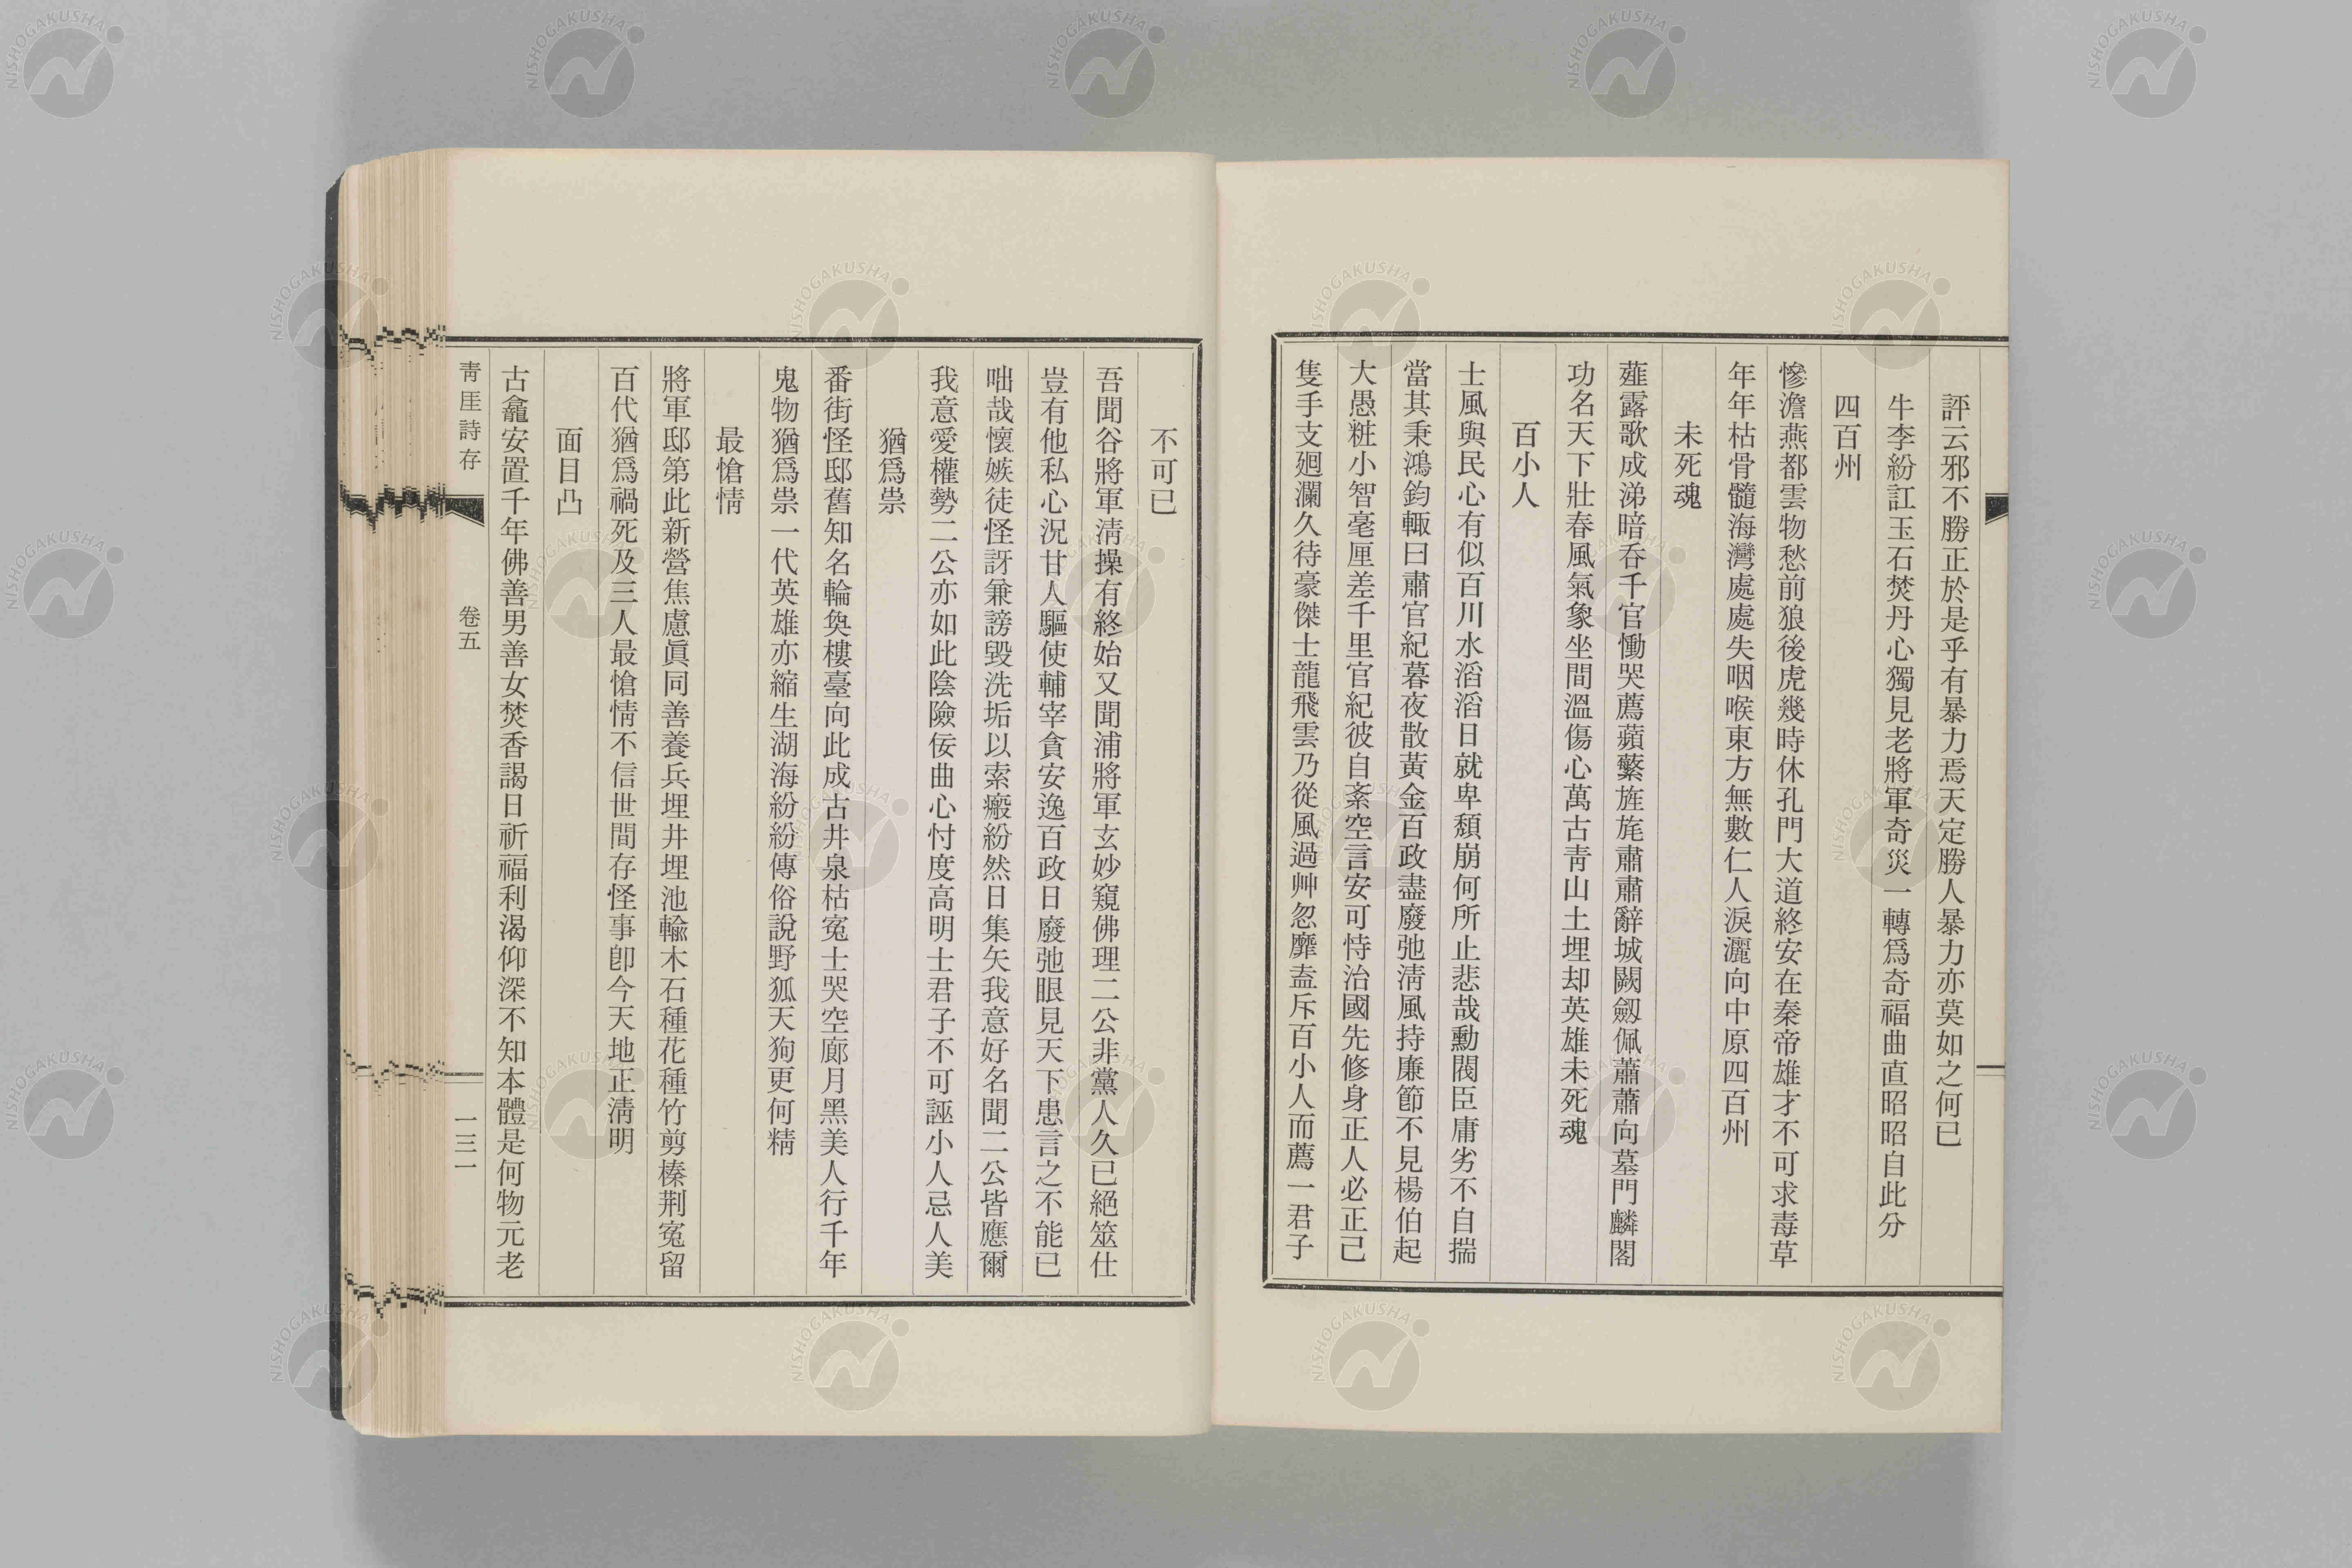 評云邪不勝正於是乎有暴力焉天定勝人暴力亦莫如之何已
牛李紛訌玉石焚丹心獨見老將軍奇災一轉爲奇福曲直昭昭自此分
四百州
慘澹燕都雲物愁前狼後虎幾時休孔門大道終安在秦帝雄才不可求毒草
年年枯骨髓海灣處處失咽喉東方無數仁人淚灑向中原四百州
未死魂
薤露歌成涕暗呑千官慟哭薦蘋蘩旌旄肅肅辭城闕劔佩蕭蕭向墓門麟閣
功名天下壯春風氣象坐間溫傷心萬古靑山土埋却英雄未死魂
百小人
士風與民心有似百川水滔滔日就卑頽崩何所止悲哉勳閥臣庸劣不自揣
當其秉鴻鈞輙曰肅官紀暮夜散黃金百政盡廢弛淸風持廉節不見楊伯起
大愚粧小智毫厘差千里官紀彼自紊空言安可恃治國先修身正人必正己
隻手支廻瀾久待豪傑士龍飛雲乃從風過艸忽靡盍斥百小人而薦一君子
不可已
吾聞谷將軍淸操有終始又聞浦將軍玄妙窺佛理二公非黨人久已絕筮仕
豈有他私心況甘人驅使輔宰貪安逸百政日廢弛眼見天下患言之不能已
咄哉懷嫉徒怪訝兼謗毀洗垢以索瘢紛然日集矢我意好名聞二公皆應爾
我意愛權勢二公亦如此陰險佞曲心忖度高明士君子不可誣小人忌人美
猶爲祟
番街怪邸舊知名輪奐樓臺向此成古井泉枯寃士哭空廊月黑美人行千年
鬼物猶爲祟一代英雄亦縮生湖海紛紛傳俗說野狐天狗更何精
最愴情
將軍邸第此新營焦慮眞同善養兵埋井埋池輸木石種花種竹剪榛荆寃留
百代猶爲禍死及三人最愴情不信世間存怪事卽今天地正淸明
面目凸
古龕安置千年佛善男善女焚香謁日祈福利渴仰深不知本體是何物元老
靑厓詩存
卷五
一三一
NISHOGAKUSHA